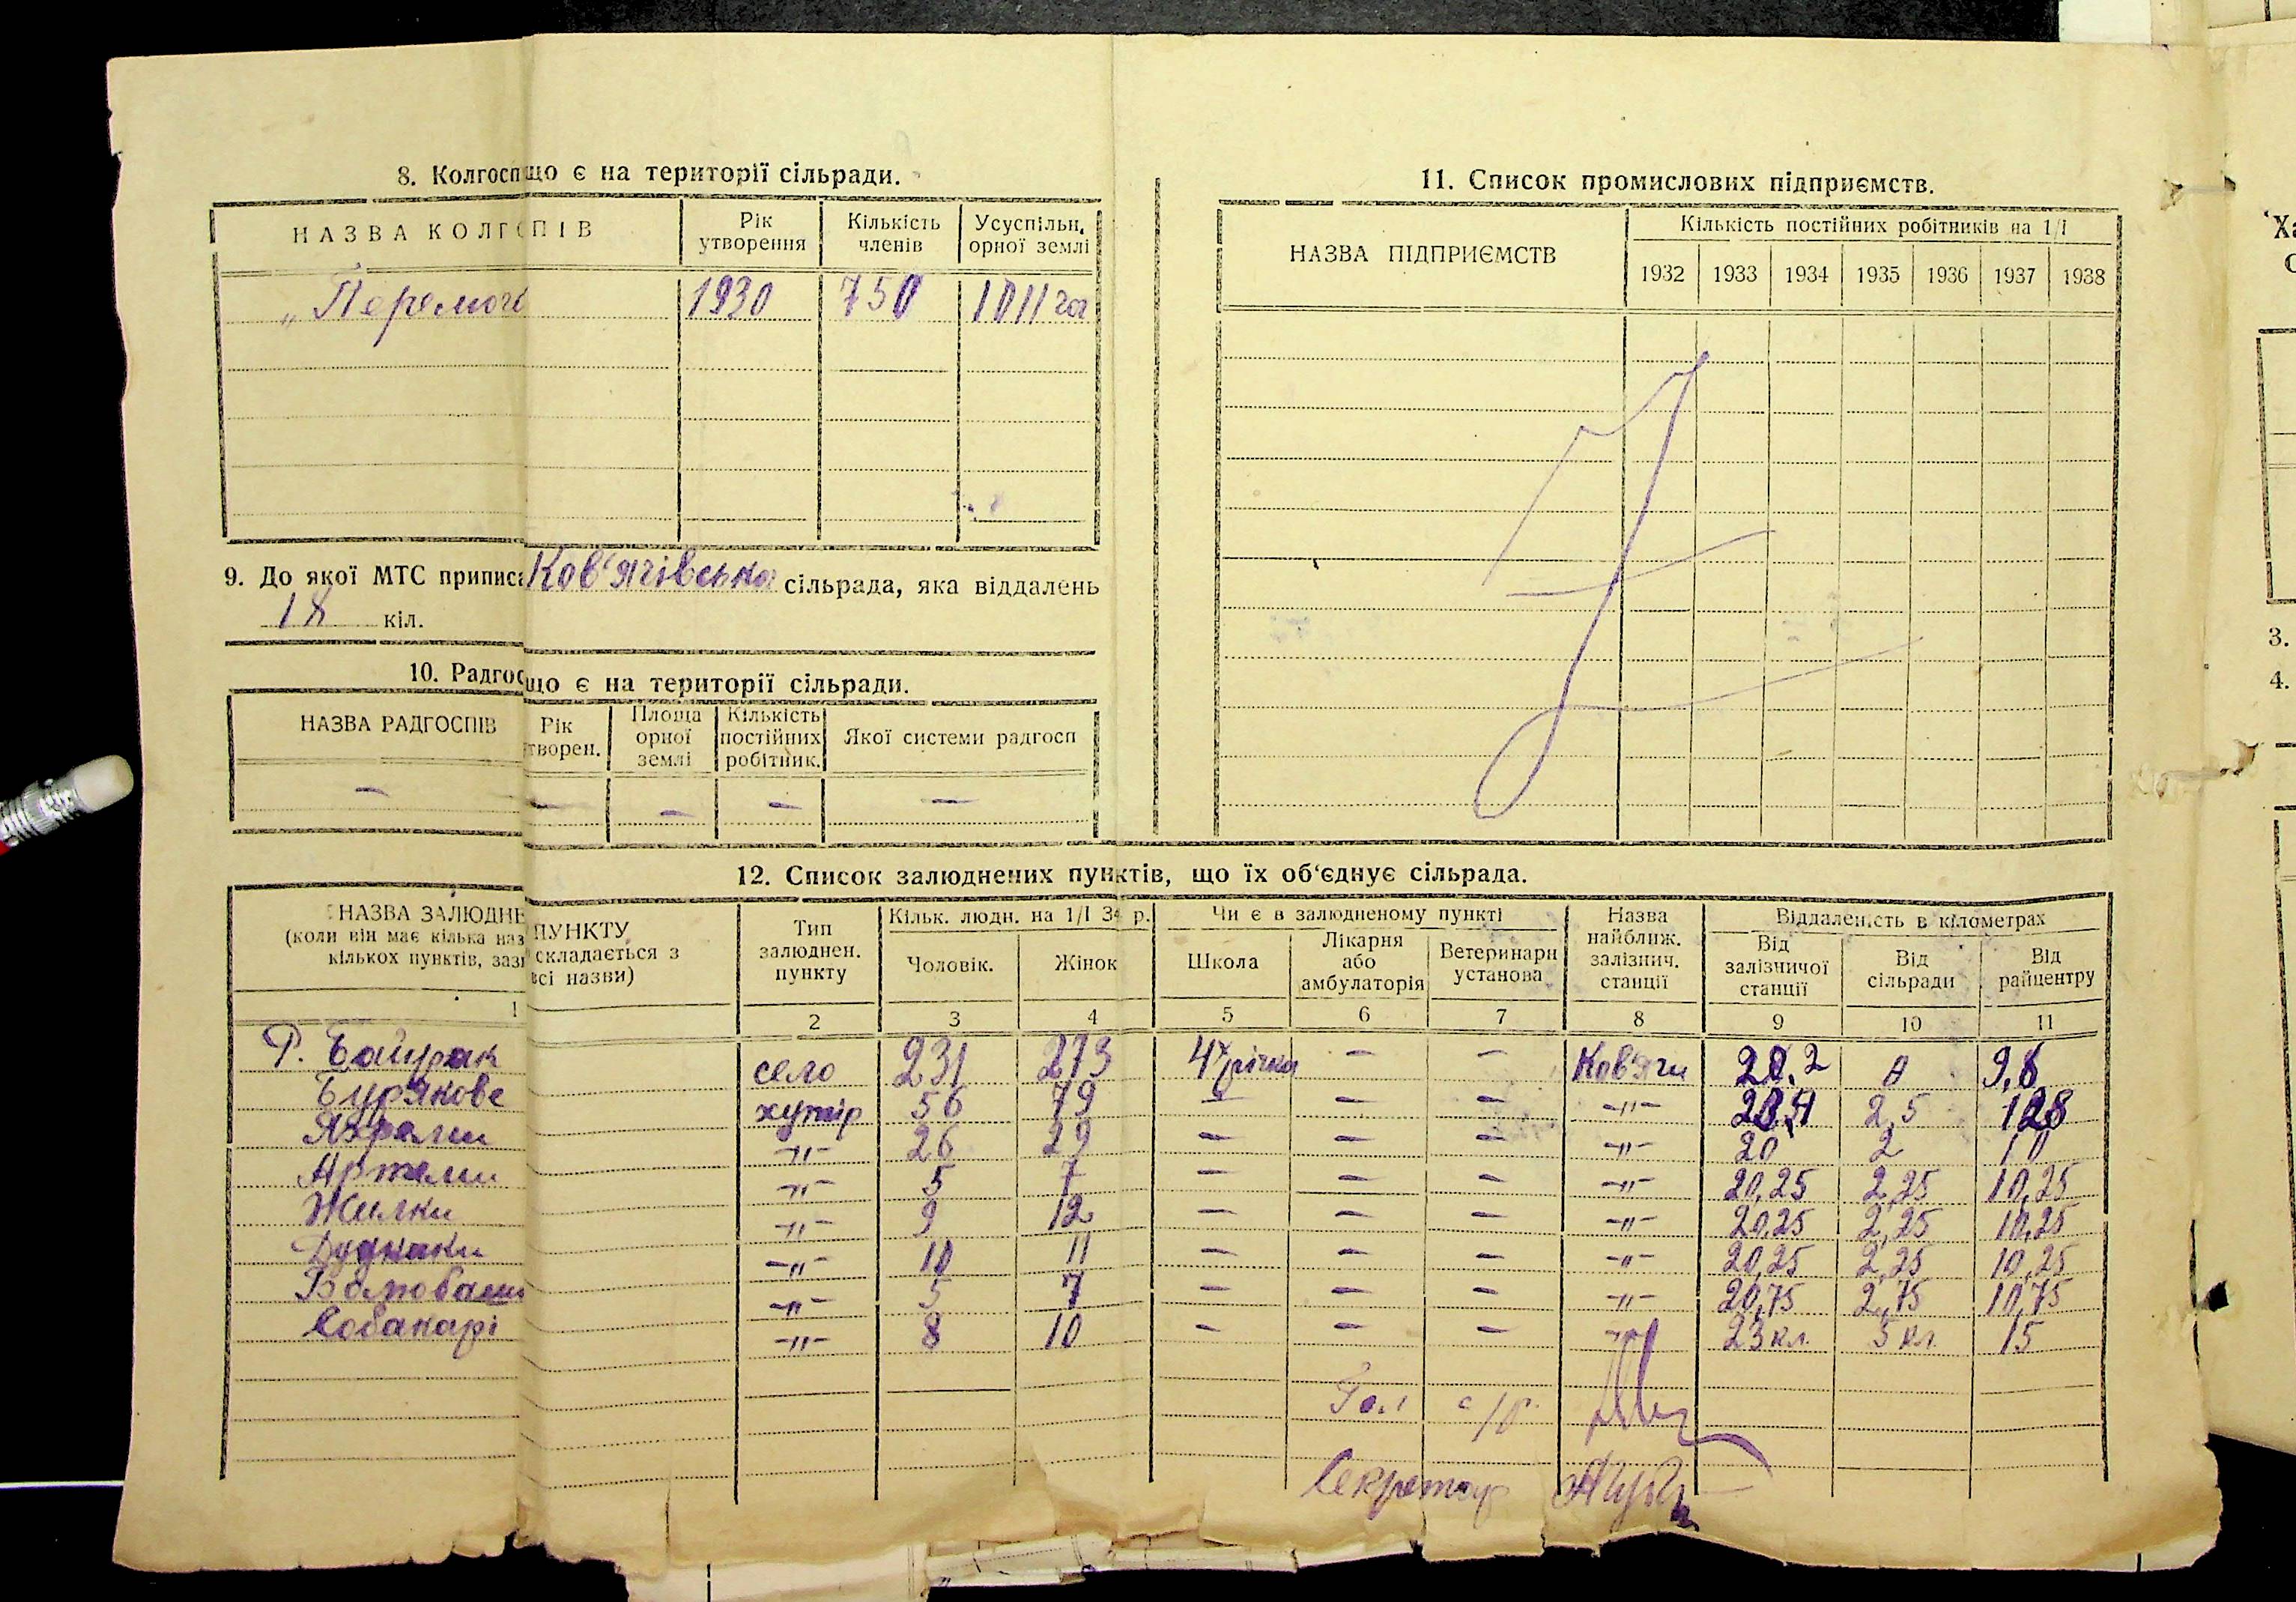 8. Колгосп що є на території сільради.
НАЗВА КОЛГОСПІВ Рік утворення Кількість членів Усуспільн. орної землі
„Перемога 1930 750 1011 га
9. До якої МТС приписа Ков'ягівська сільрада, яка віддалень
18 кіл.
10. Радгос що є на території сільради.
НАЗВА РАДГОСПІВ Рік творен. Площа орної землі Кількість постійних робітник. Якої системи радгосп
— — — — —
11. Список промислових підприємств.
НАЗВА ПІДПРИЄМСТВ Кількість постійних робітників на 1/І
1932 1933 1934 1935 1936 1937 1938
12. Список залюднених пунктів, що їх об'єднує сільрада.
НАЗВА ЗАЛЮДНЕ ПУНКТУ Тип залюднен. пункту Кільк. людн. на 1/І 34 р. Чи є в залюдненому пункті Назва найближ. залізнич. станції Віддаленість в кілометрах
(коли він має кілька наз складається з
кількох пунктів, заз всі назви)
Чоловік. Жінок Школа Лікарня або амбулаторія Ветеринарн установа Від залізничої станції Від сільради Від райцентру
1 2 3 4 5 6 7 8 9 10 11
Р. Байрак село 231 273 4х річка — — Ков'яги 20,2 0 9,8
Бурякове хутір 56 79 — — — —"— 2,5 128
—"— 26 29 — — — —"— 20 2 10
Артеми —"— 5 7 — — — —"— 20,25 2,25 10,25
Жилки —"— 9 12 — — — —"— 20,25 2,25 10,25
Дудники —"— 10 11 — — — —"— 20,25 2,25 10,25
—"— 5 7 — — — —"— 20,75 2,75 10,75
Собакарі —"— 8 10 — — — —"— 23 кл. 5 кл. 15
Гол с/р.
Секретар